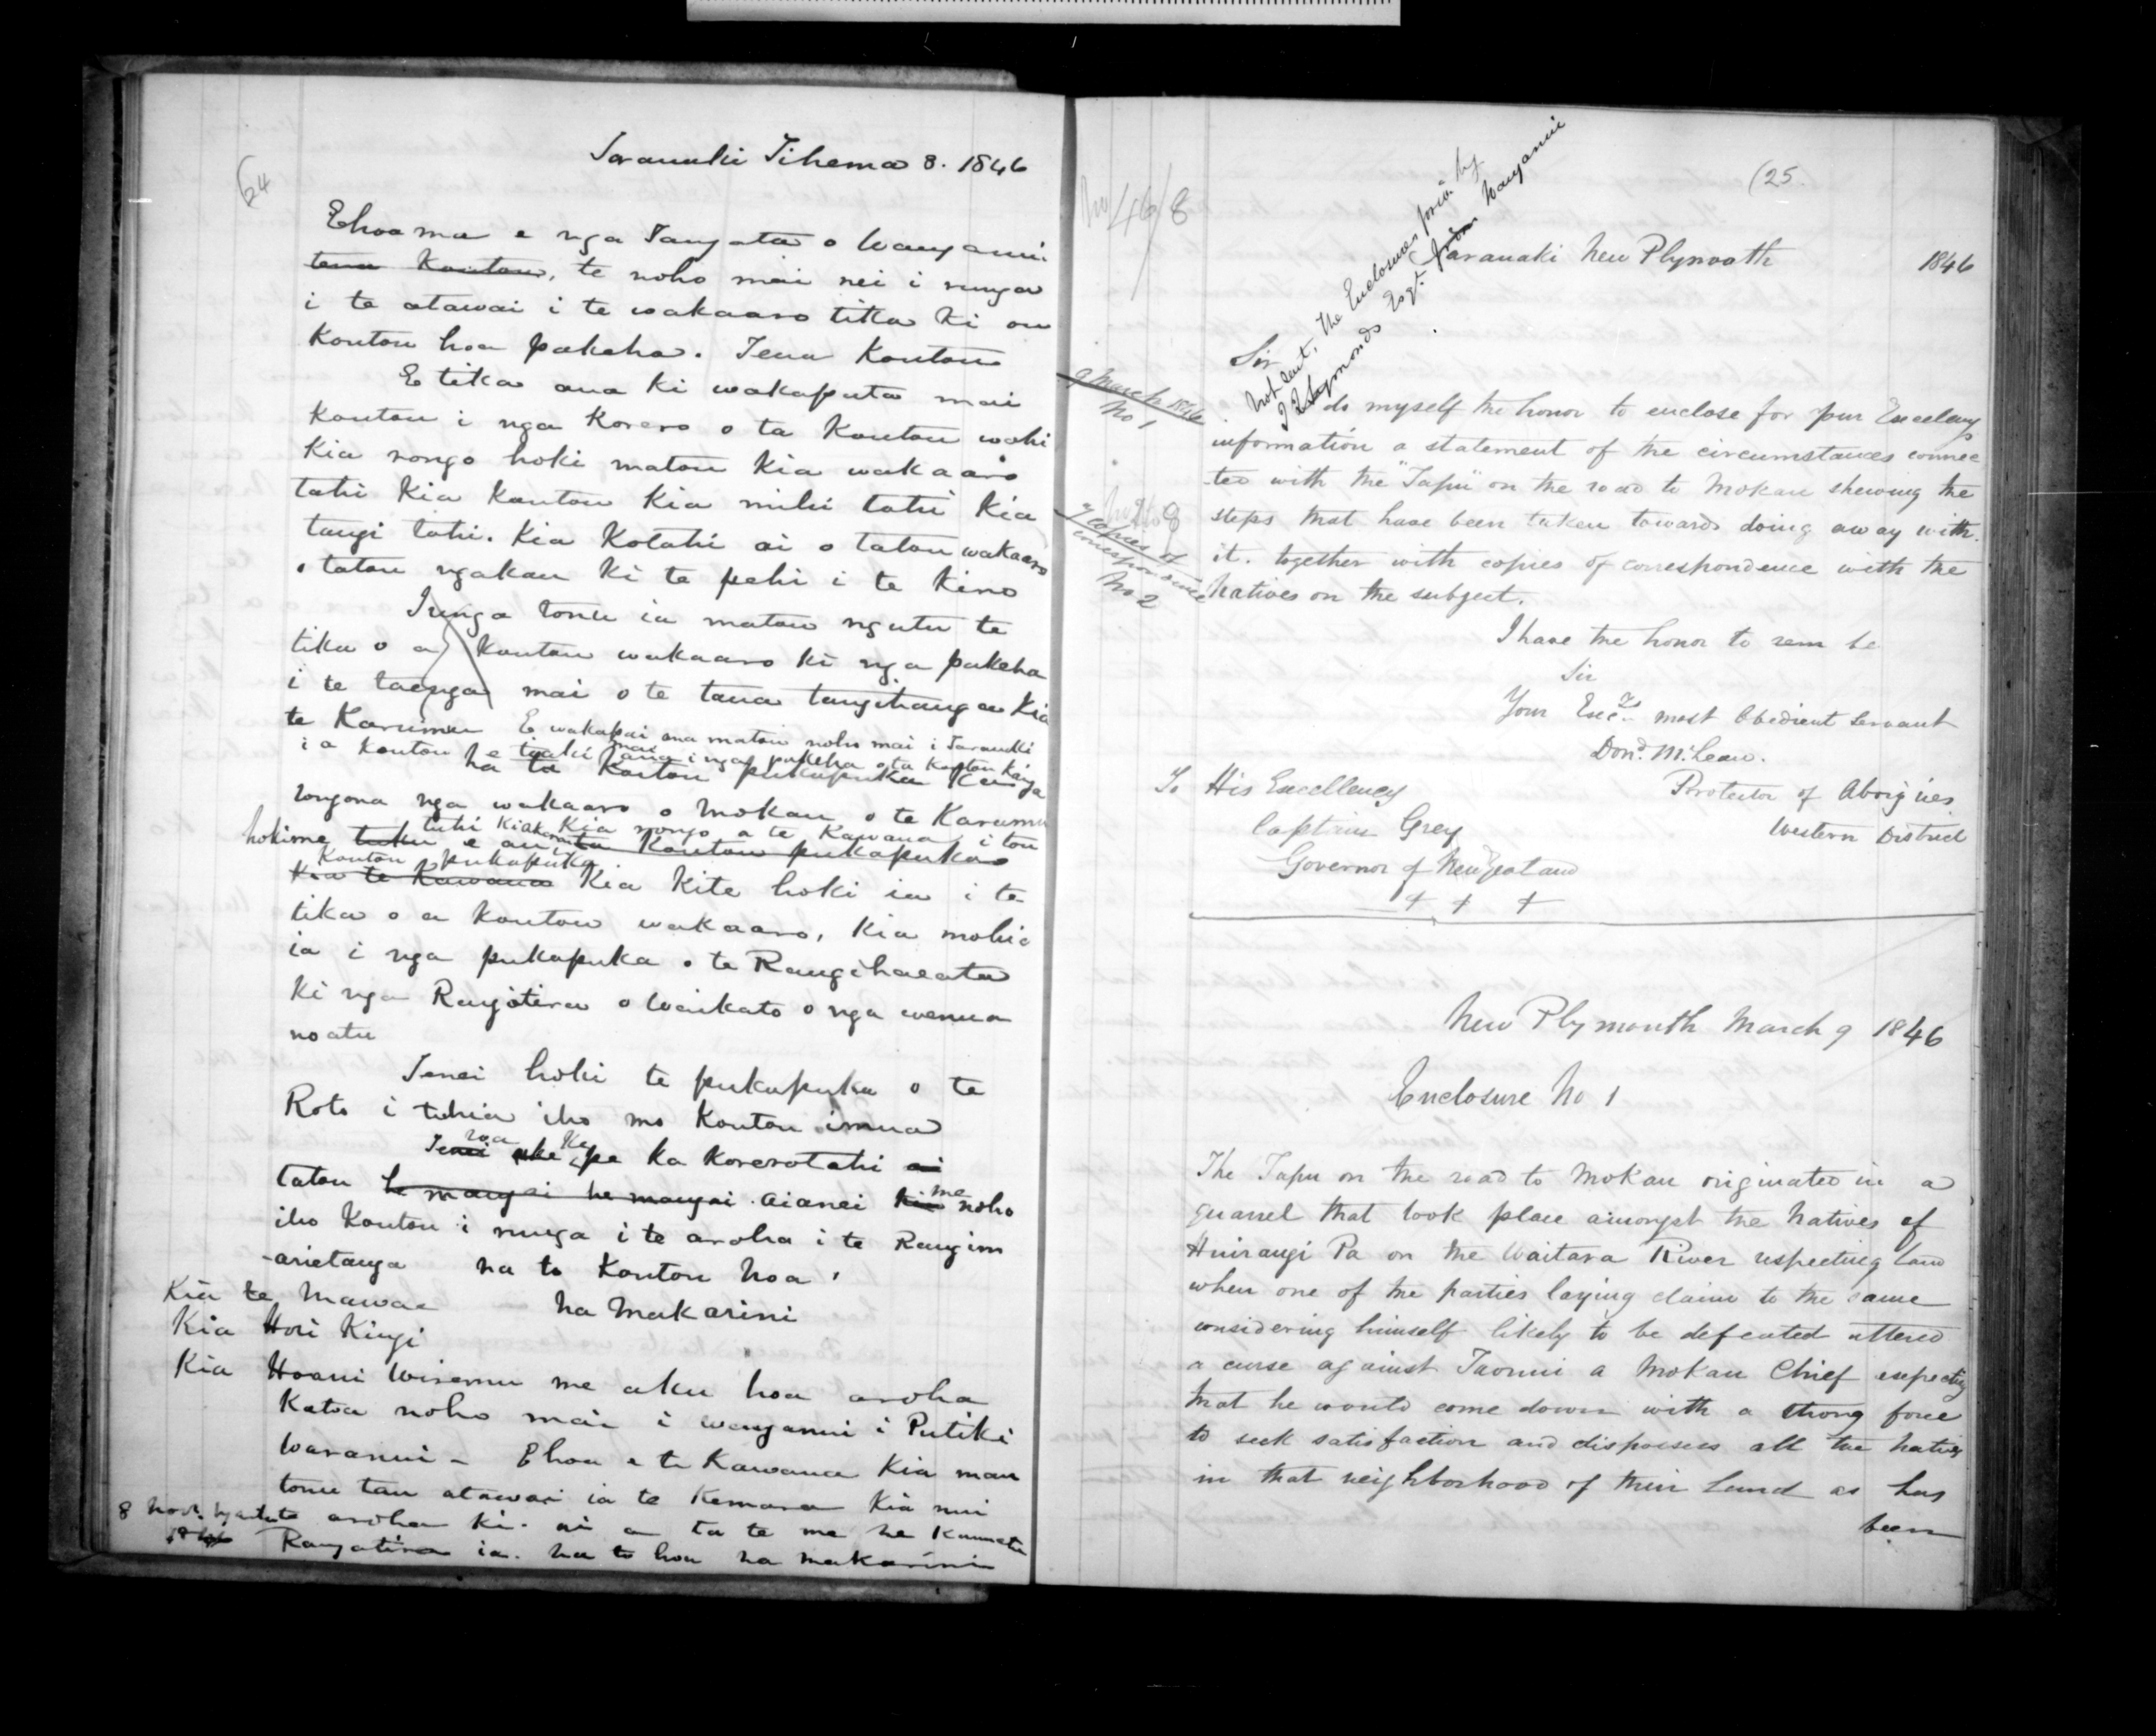 (24
Taranaki Tihema 8. 1846
Ehoa ma e nga Tangata o Wanganui
tena Koutou, te noho mai nei i runga
i te atawai i te wakaaro tika ki ou
Koutou hoa pakeha. Tena Koutou
E tika ana ki wakaputa mai
Koutou i nga Korero o ta Koutou wahi
Kia rongo hoki matou Kia wakaaro
tahi Kia Koutou Kia mihi tahi Kia
tangi tahi. Kia Kotahi ai o tatou wakaaro
o tatou ngakau Ki te pehi i te Kino
I runga tonu ia matou ngutu te
tika o a Koutou wakaaro ki nga pakeha
i te taenga mai o te taua tangihanga Kia
te Karumu E wakapai ana matou noho mai i Taranaki
i a Koutou e tiaki mai ana i nga pakeha o ta Koutou Kainga
na ta Koutou pukapuka Ka
rongona nga wakaaro o Mokau o te Karumu
tuhi Kia rongo a te Kawana i tou
hokime tuku e au i ta Koutou pukapuka
Koutou pukapuka
Kia te Kawana Kia Kite hoki ia i te
tika o a Koutou wakaaro, Kia mohio
ia i nga pukapuka o te Rangihaeata
Ki nga Rangatira o Waikato o nga wenua
noatu
Tenei hoki te pukapuka o te
Roto i tuhia iho mo Koutou imua
roa Ke
Tenei ake pe ka Korerotahi ai
tatou he mangai he mangai aianei kia me noho
iho Koutou i runga i te aroha i te Rangim
-arietanga na to Koutou hoa,
Kia te Mawae na Makarini
Kia Hori Kingi
Kia Hoani Wiremu me aku hoa aroha
Katoa noho mai i Wanganui i Putiki
Waranui - Ehoa e te Kawana Kia mau
tonu tau atawai ia te Kemara Kia nui
8 Novr. aroha ki ai a ta te me he Kaumatu
1846 Rangatira ia. na to hoa na Makarini
(25.
No 46/8
Not sent, the Enclosures forwd. by
J Symonds Esqr. from Wanganui
Taranaki New Plymouth 1846
Sir
9 March 1846
No 1
I do myself the honor to enclose for your Excellency's
information a statement of the circumstances connec
ted with the "Tapu" on the road to Mokau shewing the
steps that have been taken towards doing away with
it. together with copies of correspondence with the
Natives on the subject.
7 copies of
correspondence
No 2
I have the honor to rem be
Sir
Your Excy's most Obedient Servant
Dond. McLean.
To His Excellency Protector of Aborigines
Captain Grey Western District
Governor of New Zealand
+ + +
New Plymouth March 9 1846
Enclosure No 1
The Tapu on the road to Mokau originated in a
quarrel that took place amongst the Natives of
Huirangi Pa on the Waitara River respecting land
when one of the parties laying claim to the same
considering himself likely to be defeated uttered
a curse against Taonui a Mokau Chief expecting
that he would come down with a strong force
to seek satisfaction and dispossess all the natives
in that neighborhood of their land as has
been